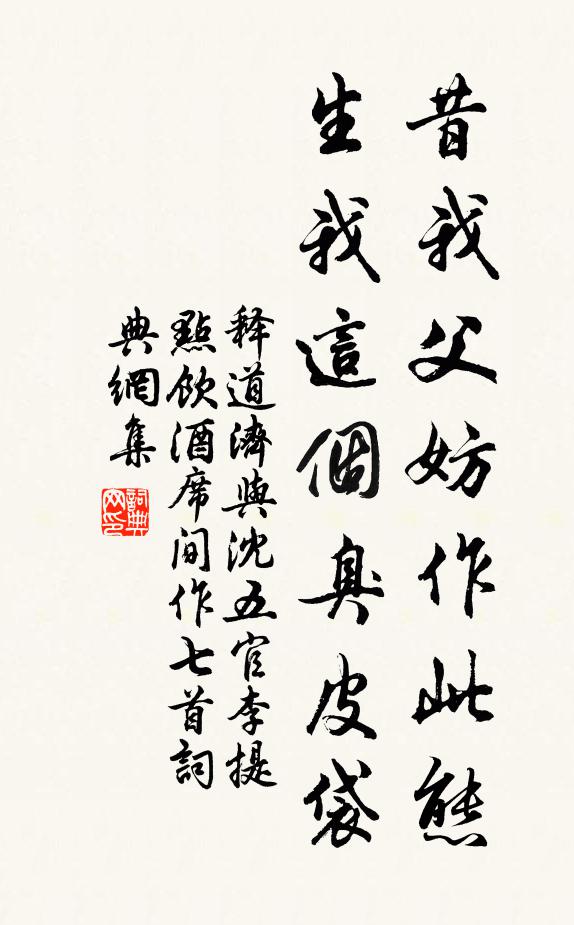 昔我父妨作此態
生我這個臭皮袋
释道濟與沈五官李提
點飲酒席間作七首詞
典網集
詞典网印